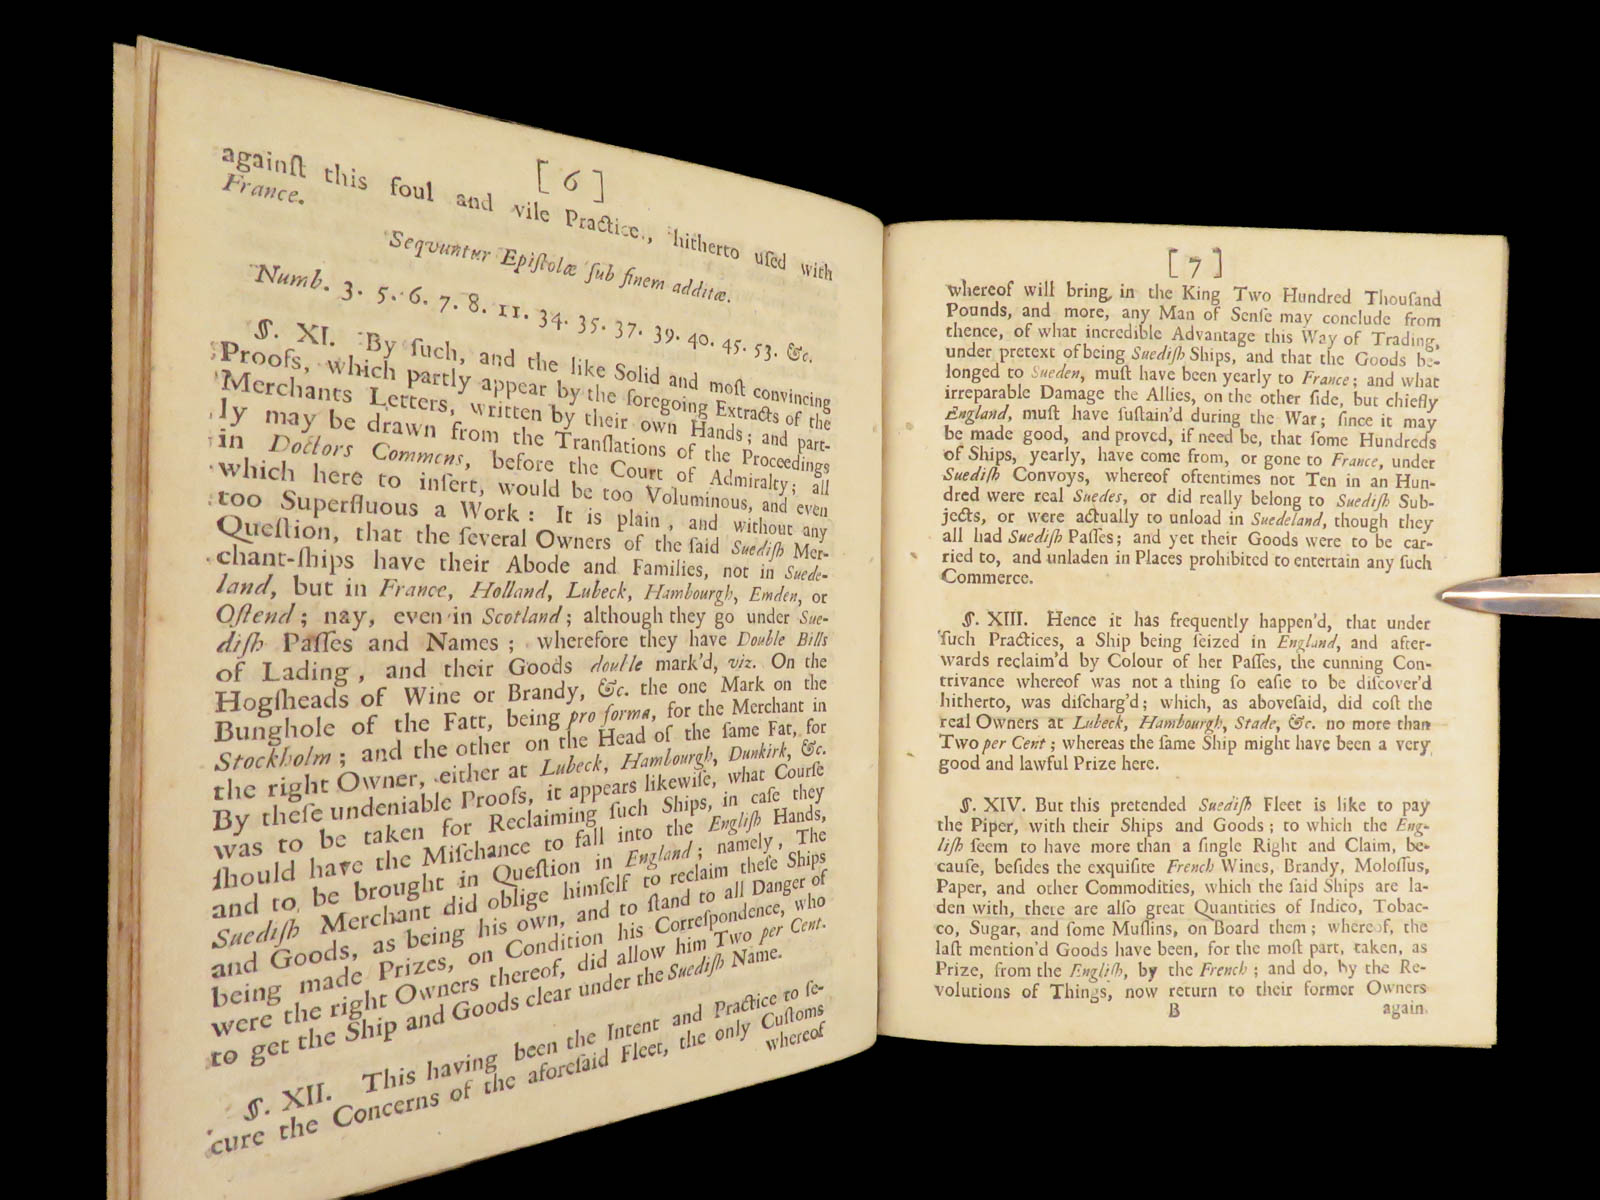 [ 6 ]
againſt this foul and vile Practice, hitherto uſed with
France.
Seqvuntur Epiſtolæ ſub finem additæ.
Numb. 3. 5. 6. 7. 8. 11. 34. 35. 37. 39. 40. 45. 53. &c.
§. XI. By ſuch, and the like Solid and moſt convincing
Proofs, which partly appear by the foregoing Extracts of the
Merchants Letters, written by their own Hands; and part-
ly may be drawn from the Tranſlations of the Proceedings
in Doctors Commons, before the Court of Admiralty; all
which here to inſert, would be too Voluminous, and even
too Superfluous a Work: It is plain, and without any
Queſtion, that the ſeveral Owners of the ſaid Suediſh Mer-
chant-ſhips have their Abode and Families, not in Suede-
land, but in France, Holland, Lubeck, Hambourgh, Emden, or
Oſtend; nay, even in Scotland; although they go under Sue-
diſh Paſſes and Names; wherefore they have Double Bills
of Lading, and their Goods double mark'd, viz. On the
Hogſheads of Wine or Brandy, &c. the one Mark on the
Bunghole of the Fatt, being pro forma, for the Merchant in
Stockholm; and the other on the Head of the ſame Fat, for
the right Owner, either at Lubeck, Hambourgh, Dunkirk, &c.
By theſe undeniable Proofs, it appears likewiſe, what Courſe
was to be taken for Reclaiming ſuch Ships, in caſe they
ſhould have the Miſchance to fall into the Engliſh Hands,
and to be brought in Queſtion in England; namely, The
Suediſh Merchant did oblige himſelf to reclaim theſe Ships
and Goods, as being his own, and to ſtand to all Danger of
being made Prizes, on Condition his Correſpondence, who
were the right Owners thereof, did allow him Two per Cent.
to get the Ship and Goods clear under the Suediſh Name.
§. XII. This having been the Intent and Practice to ſe-
cure the Concerns of the aforeſaid Fleet, the only Cuſtoms
whereof
[ 7 ]
whereof will bring in the King Two Hundred Thouſand
Pounds, and more, any Man of Senſe may conclude from
thence, of what incredible Advantage this Way of Trading,
under pretext of being Suediſh Ships, and that the Goods be-
longed to Sueden, muſt have been yearly to France; and what
irreparable Damage the Allies, on the other ſide, but chiefly
England, muſt have ſuſtain'd during the War; ſince it may
be made good, and proved, if need be, that ſome Hundreds
of Ships, yearly, have come from, or gone to France, under
Suediſh Convoys, whereof oftentimes not Ten in an Hun-
dred were real Suedes, or did really belong to Suediſh Sub-
jects, or were actually to unload in Suedeland, though they
all had Suediſh Paſſes; and yet their Goods were to be car-
ried to, and unladen in Places prohibited to entertain any ſuch
Commerce.
§. XIII. Hence it has frequently happen'd, that under
ſuch Practices, a Ship being ſeized in England, and after-
wards reclaim'd by Colour of her Paſſes, the cunning Con-
trivance whereof was not a thing ſo eaſie to be diſcover'd
hitherto, was diſcharg'd; which, as aboveſaid, did coſt the
real Owners at Lubeck, Hambourgh, Stade, &c. no more than
Two per Cent; whereas the ſame Ship might have been a very
good and lawful Prize here.
§. XIV. But this pretended Suediſh Fleet is like to pay
the Piper, with their Ships and Goods; to which the Eng-
liſh ſeem to have more than a ſingle Right and Claim, be-
cauſe, beſides the exquiſite French Wines, Brandy, Moloſſus,
Paper, and other Commodities, which the ſaid Ships are la-
den with, there are alſo great Quantities of Indico, Tobac-
co, Sugar, and ſome Muſlins, on Board them; whereof, the
laſt mention'd Goods have been, for the moſt part, taken, as
Prize, from the Engliſh, by the French; and do, by the Re-
volutions of Things, now return to their former Owners
B again.